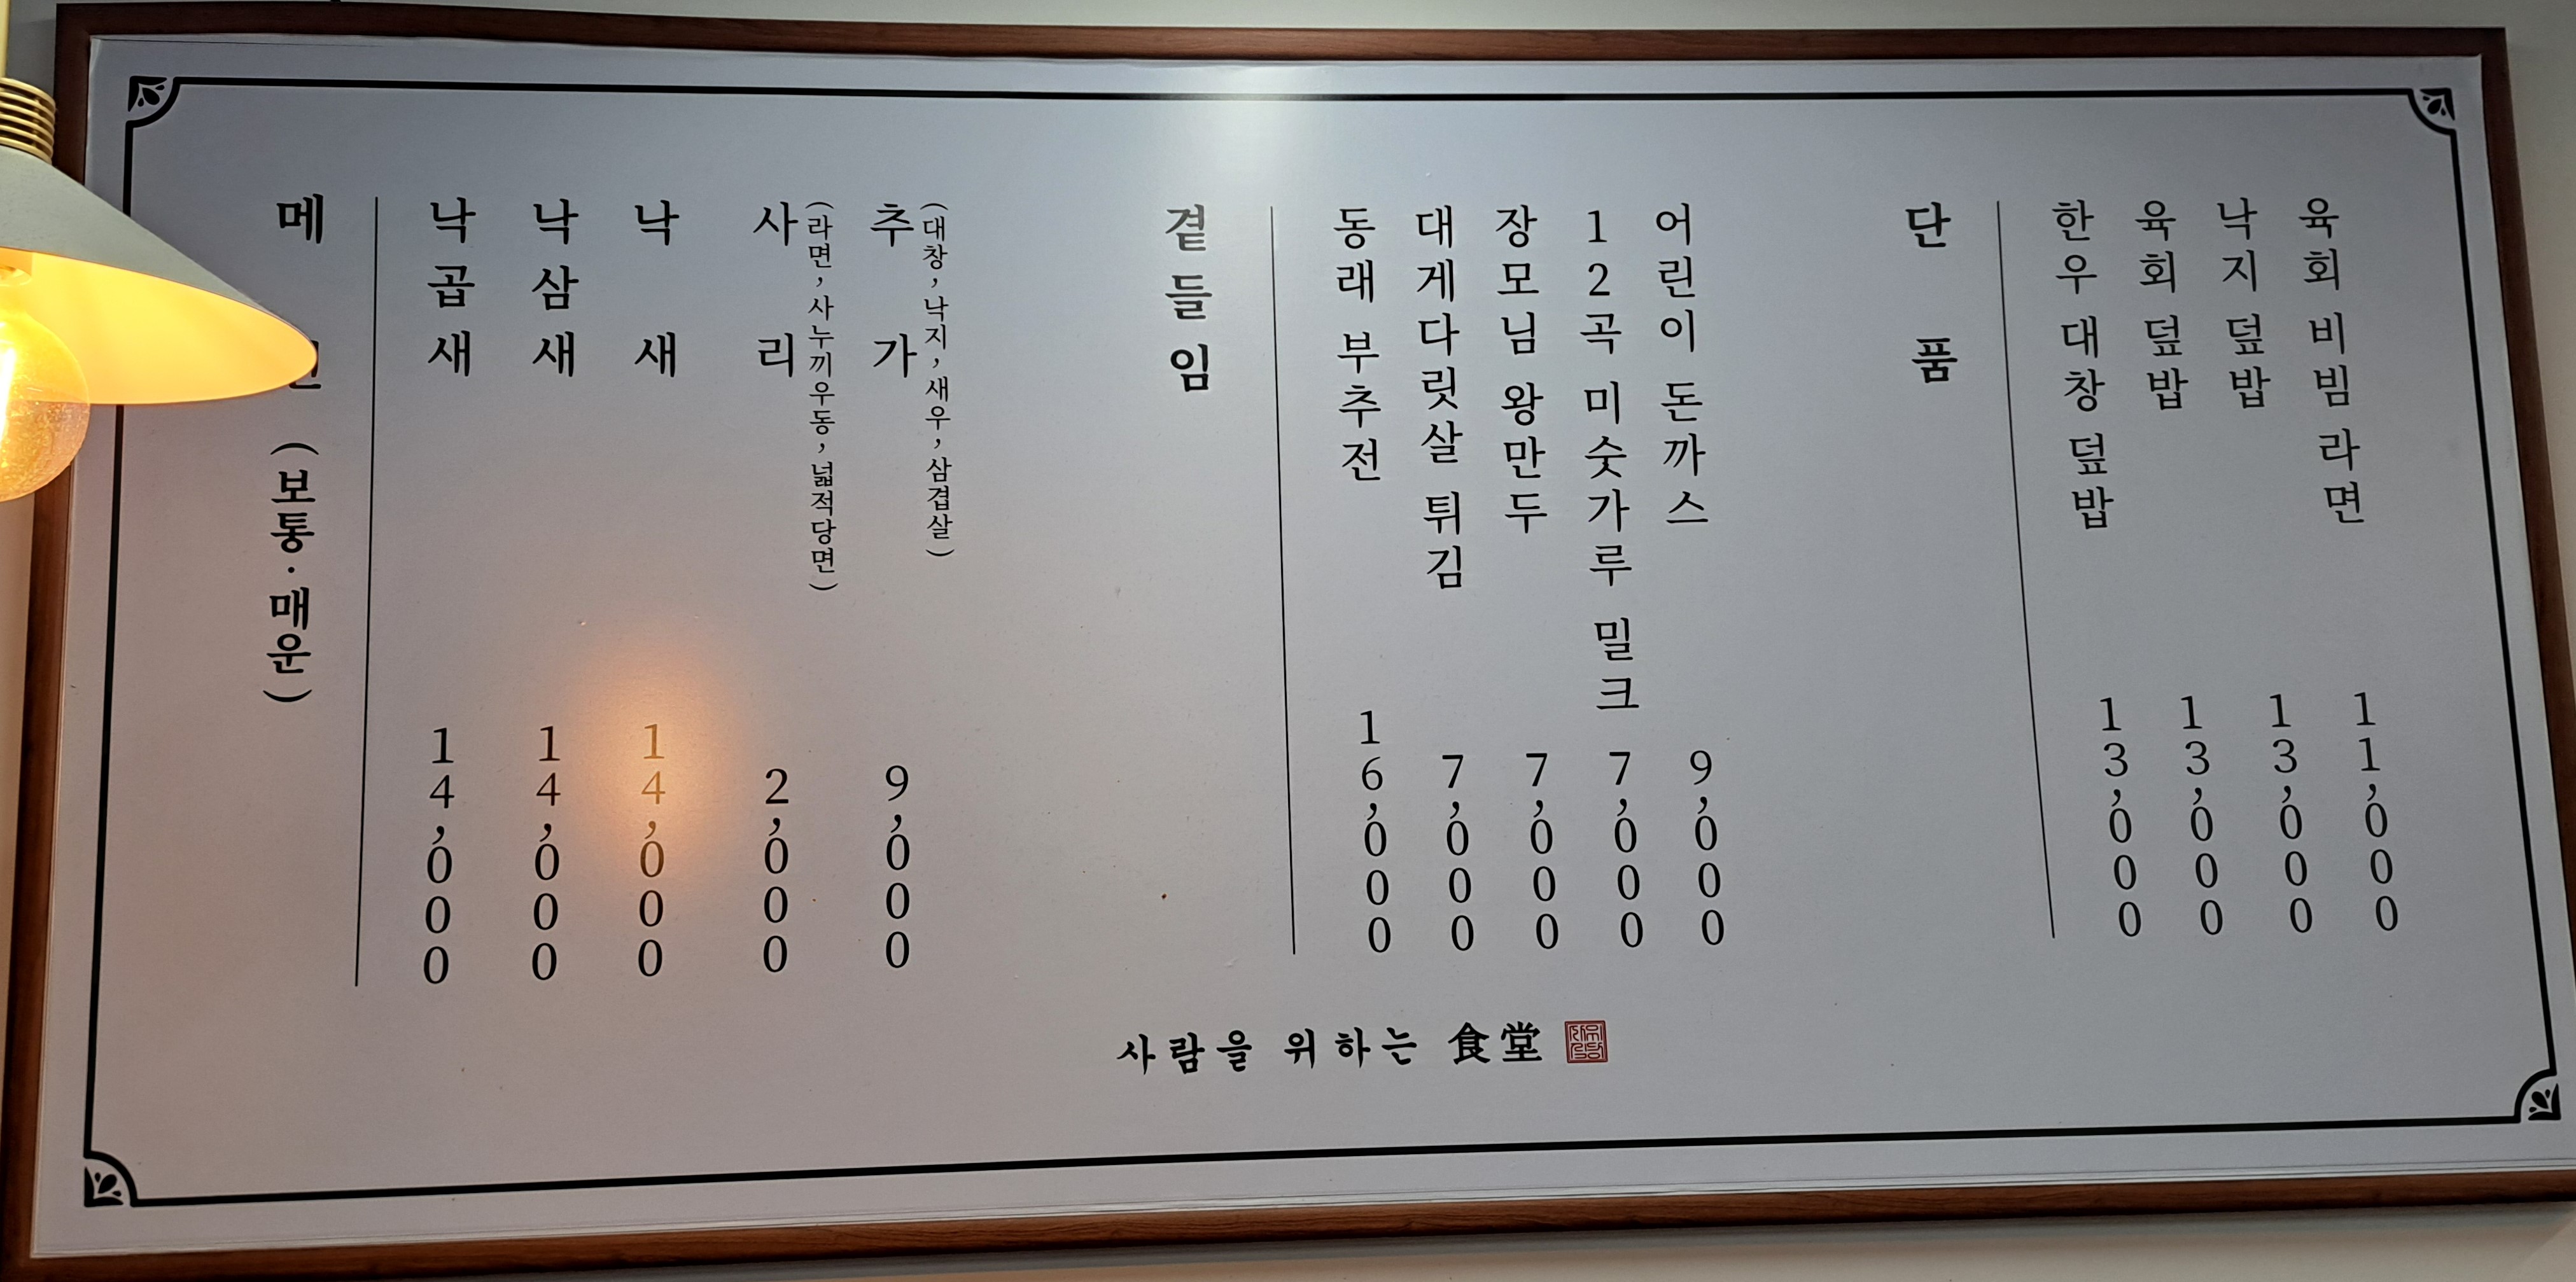 메 (보통·매운)
낙곱새 14,000
낙삼새 14,000
낙새 14,000
사리 (라면, 사누끼우동, 넓적당면) 2,000
추가 (대창, 낙지, 새우, 삼겹살) 9,000
곁들임
동래 부추전 16,000
대게다릿살 튀김 7,000
장모님 왕만두 7,000
12곡 미숫가루 밀크 7,000
어린이 돈까스 9,000
단품
한우 대창 덮밥 13,000
육회 덮밥 13,000
낙지 덮밥 13,000
육회 비빔 라면 11,000
사람을 위하는 食堂